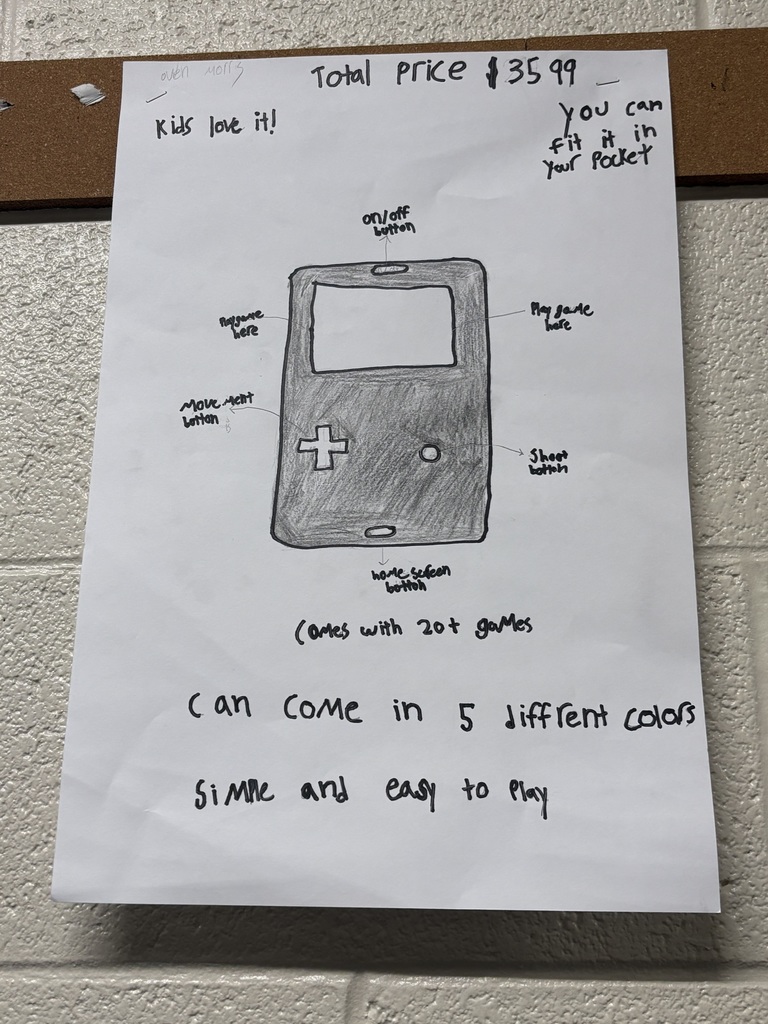 Total Price $35 99
Kids love it!
You can
fit it in
your Pocket
on/off
button
Play game
here
Play game
here
Movement
button
Shoot
button
home screen
button
Comes with 20+ games
Can come in 5 diffrent colors
Simple and easy to play